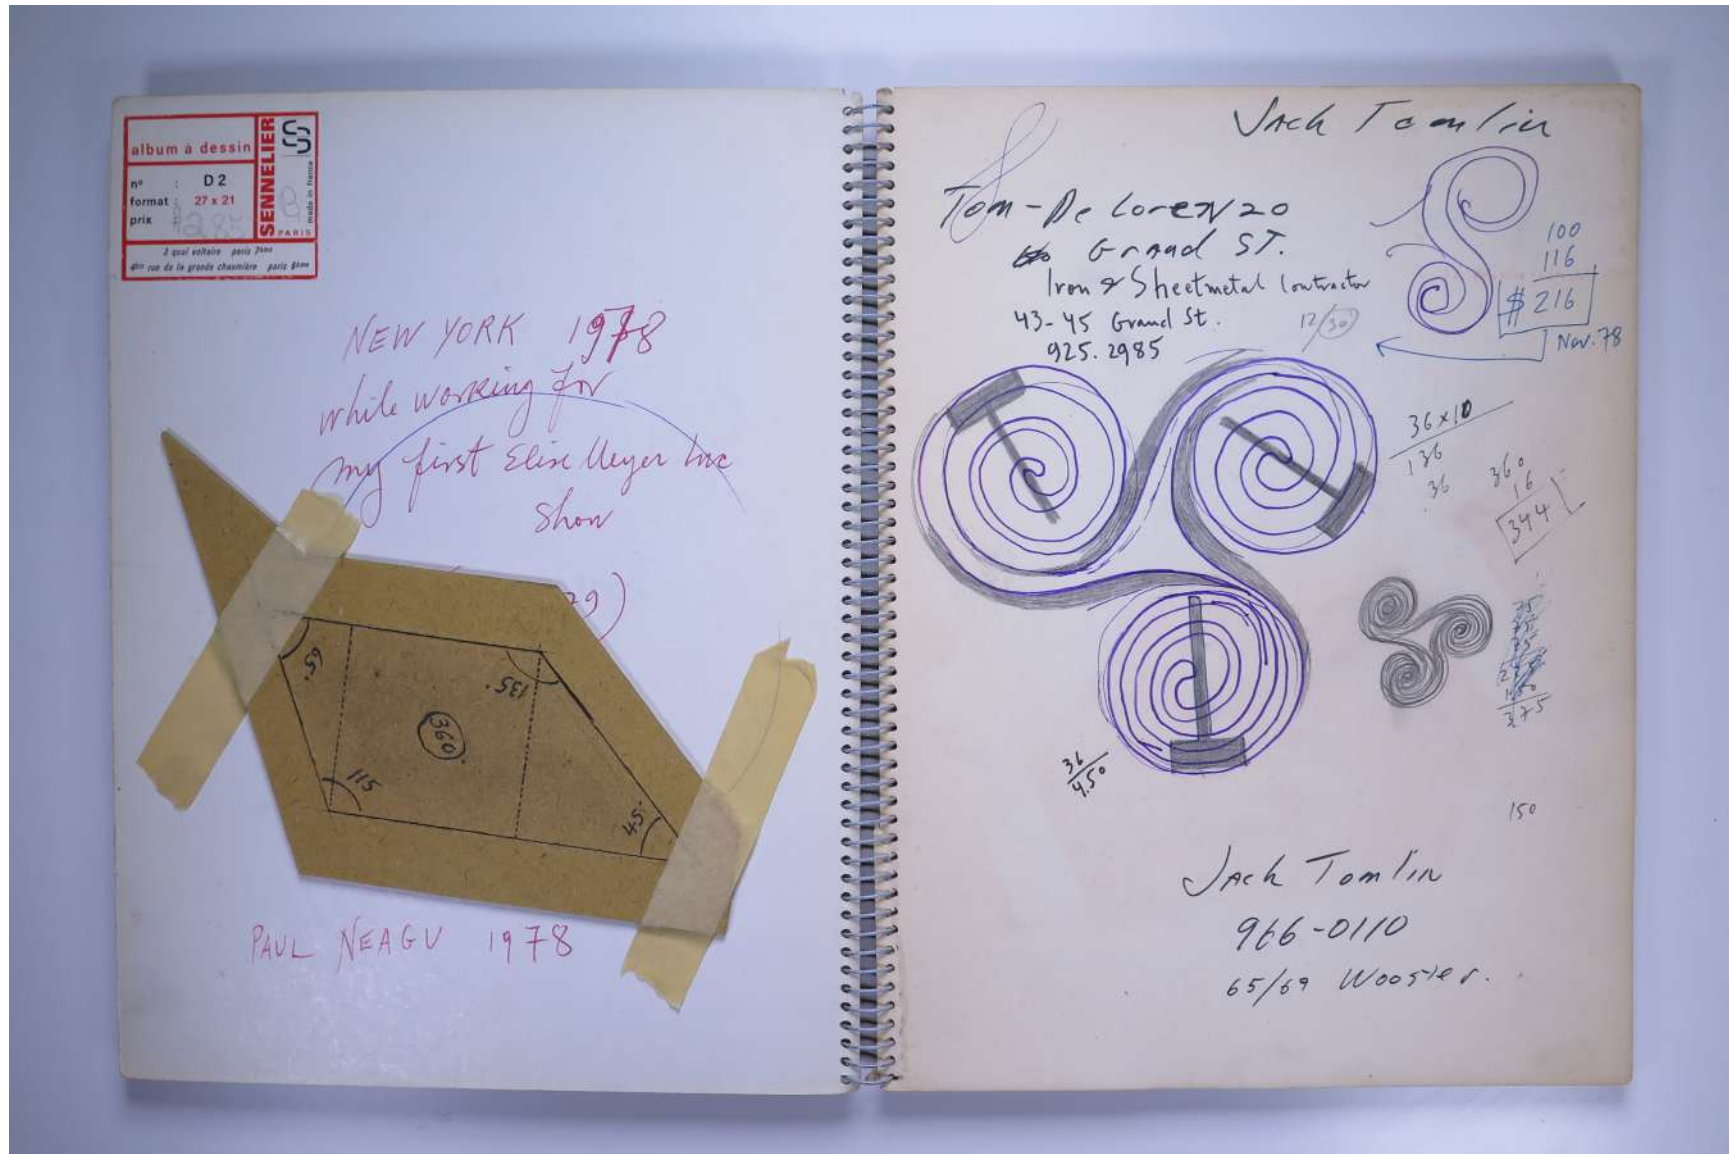 album à dessin
SENNELIER
PARIS
made in france
n° : D 2
format : 27 x 21
prix 285
3 quai voltaire paris 7ème
4bis rue de la grande chaumière paris 6ème
NEW YORK 1978
while working for
my first Elise Meyer Inc
Show
79)
65°
135°
360°
115
45°
PAUL NEAGU 1978
Jack Tomlin
Tom - De Lorenzo
Grand ST.
Iron & Sheetmetal Contractor
43-45 Grand St.
925.2985
12/30
100
116
$ 216
Nov. 78
36 x 10
136
36
360
16
344
375
36
4.50
150
Jack Tomlin
966-0110
65/69 Wooster.